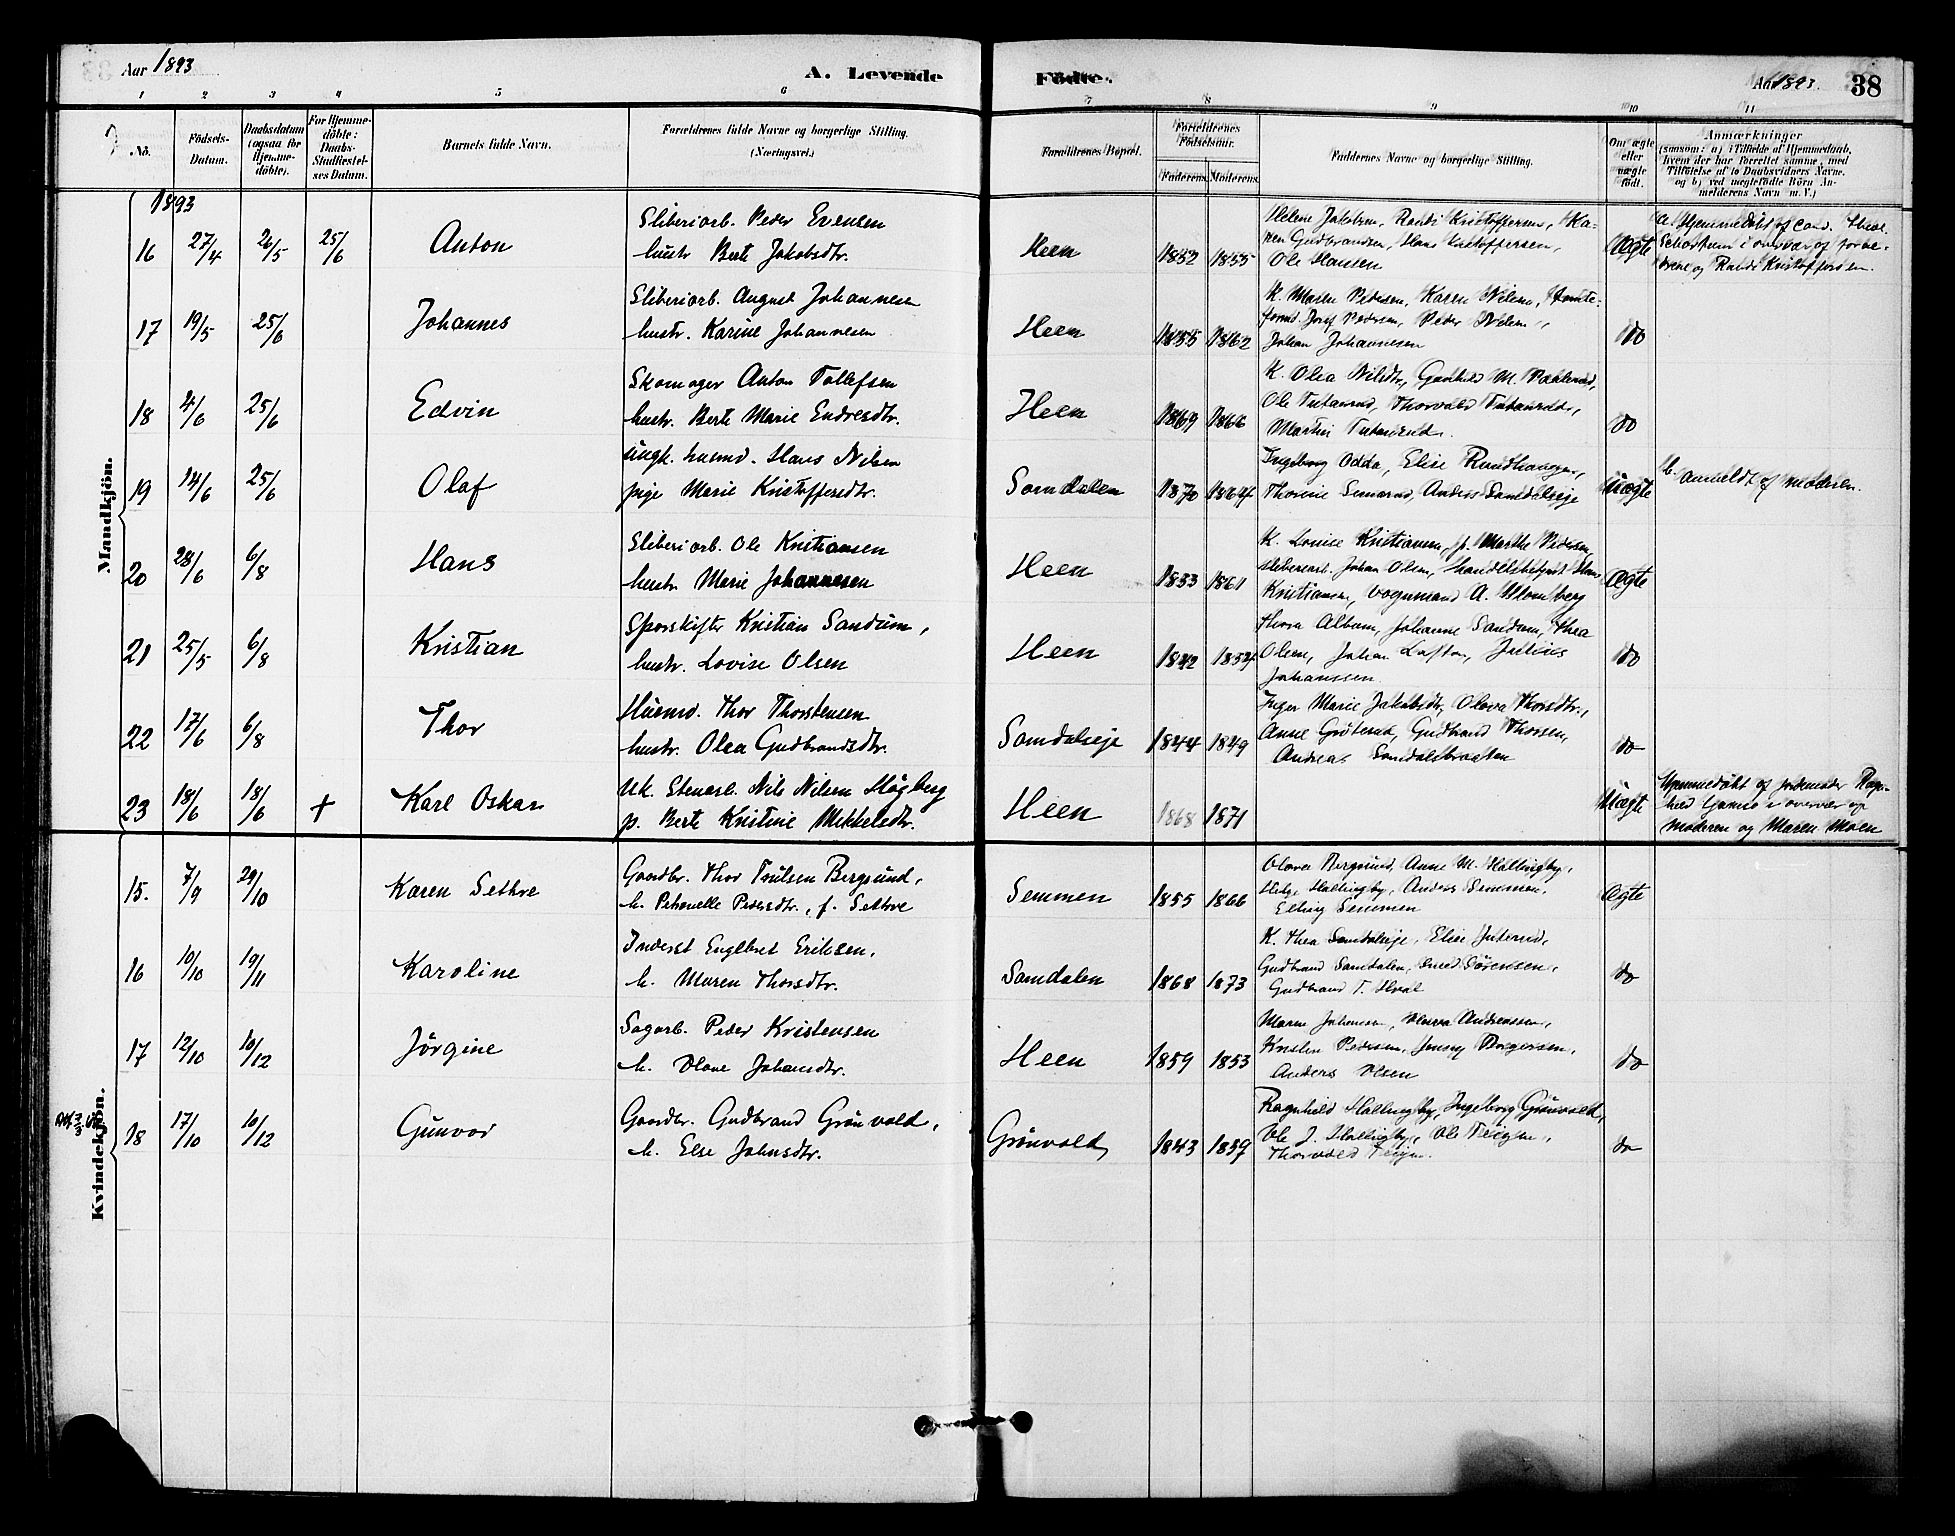 Aar 1893
A. Levende
Födte.
Aar 1893.
38
1 2 3 4 5 6 7 8 9 10 11
No.
Födsels-Datum.
Daabsdatum (ogsaa for Hjemme-döbte).
For Hjemme-döbte: Daabs-Stadfæstel-ses Datum.
Barnets fulde Navn.
Forældrenes fulde Navne og borgerlige Stilling.
(Næringsvei.)
Forældrenes Bopæl.
Forældrenes Födselsaar.
Faderens. Moderens.
Faddernes Navne og borgerlige Stilling.
Om ægte eller uægte födt.
Anmærkninger
(saasom: a) i Tilfælde af Hjemmedaab,
hvem der har forrettet samme, med
Tilföielse af to Daabsvidners Navne.
og b) ved uægtefödte Börn An-
melderens Navn m. V.)
Mandkjön.
1893
16 27/4 26/5 25/6 Anton
Sliberiarb. Peder Evensen
hustr. Berte Jakobsdtr.
Heen 1852 1855
Helene Jakobsen, Randi Kristoffersen, Ka-
ren Gudbrandsen, Hans Kristoffersen,
Ole Hansen
Ægte
a. Hjemmedöbt af Cand. Theol.
i overvær af foræl-
drene og Randi Kristoffersen.
17 19/5 25/6 Johannes
Sliberiarb. August Johannesen
hustr. Karine Johannesen
Heen 1855 1862
K. Maren Pedersen, Karen Nilsen,
Josef Pedersen, Peder Nilsen,
Johan Johannesen
do
18 4/6 25/6 Edvin
Skomager Anton Tollefsen
hustr. Berte Marie Endresdtr.
Heen 1869 1866
K. Olea Nilsdtr,
Ole Tutanrud, Thorvald Tutanrud,
Martin Tutanrud.
do
19 14/6 25/6 Olaf
ungk. husmd. Hans Nilsen
pige Marie Kristoffersdtr.
Somdalen 1870 1864
Ingeborg Odda, Elise Randhaugen,
Thorine Semerud, Anders Somdalseje
Uægte
b. anmeldt af Moderen.
20 28/6 6/8 Hans
Sliberiarb. Ole Kristiansen
hustr. Marie Johannesen
Heen 1853 1861
K. Louise Kristiansen, p. Marthe Pedersen,
Sliberiarb. Johan Olsen, Handelsbetjent Hans
Kristiansen, Vognmand A. Blomberg
Ægte
21 25/5 6/8 Kristian
Sporskifter Kristian Sandum,
hustr. Lovise Olsen
Heen 1842 1854
Thora Album, Johanne Sandum, Thea
Olsen, Johan Lofton, Julius
Johanssen.
do
22 17/6 6/8 Thor
Husmd. Thor Thorstensen
hustr. Olea Gudbrandsdtr.
Somdalseje 1844 1849
Inger Marie Jakobsdtr, Olava Thorsdtr.,
Anne Gröterud, Gudbrand Thorsen,
Andreas Somdalsbraaten
do
23 18/6 18/6 + Karl Oskar
Uk. Stenarb. Nils Nilsen Högberg
p. Berte Kristine Mikkelsdtr.
Heen 1868 1871
Uægte
Hjemmedöbt af Jordmoder Ragn-
hild i overvær af
Moderen og Maren Moen
Kvindekjön.
15. 7/9 29/10 Karen Sethre
Gaardbr. Thor Trulsen Bergsund,
h. Petronelle Pedersdtr., f. Sethre
Semmen 1855 1866
Olava Bergsund, Anne M. Hallingby,
Helge Hallingby, Anders Semmen,
Elling Semmen
Ægte
16 10/10 19/11 Karoline
Inderst Englbret Eriksen,
h. Maren Thorsdtr.
Somdalen 1868 1873
K. Thea Somdalseje, Elise Juterud,
Gudbrand Somdalen, Sörensen,
Gudbrand T. Hval
do
17 12/10 10/12 Jörgine
Sagarb. Peder Kristensen
h. Olave Johansdtr.
Heen 1859 1853
Maren Johansen, Olava Andreassen,
Kristen Pedersen, Jenny Borgersen,
Anders Olsen
do
18 17/10 10/12 Gunvor
Gaardbr. Gudbrand Grönvold,
h. Else Johnsdtr.
Grönvold 1843 1859
Ragnhild Hallingby, Ingeborg Grönvold,
Ole J. Hallingby, Ole Teigen,
Thorvald Teigen.
do